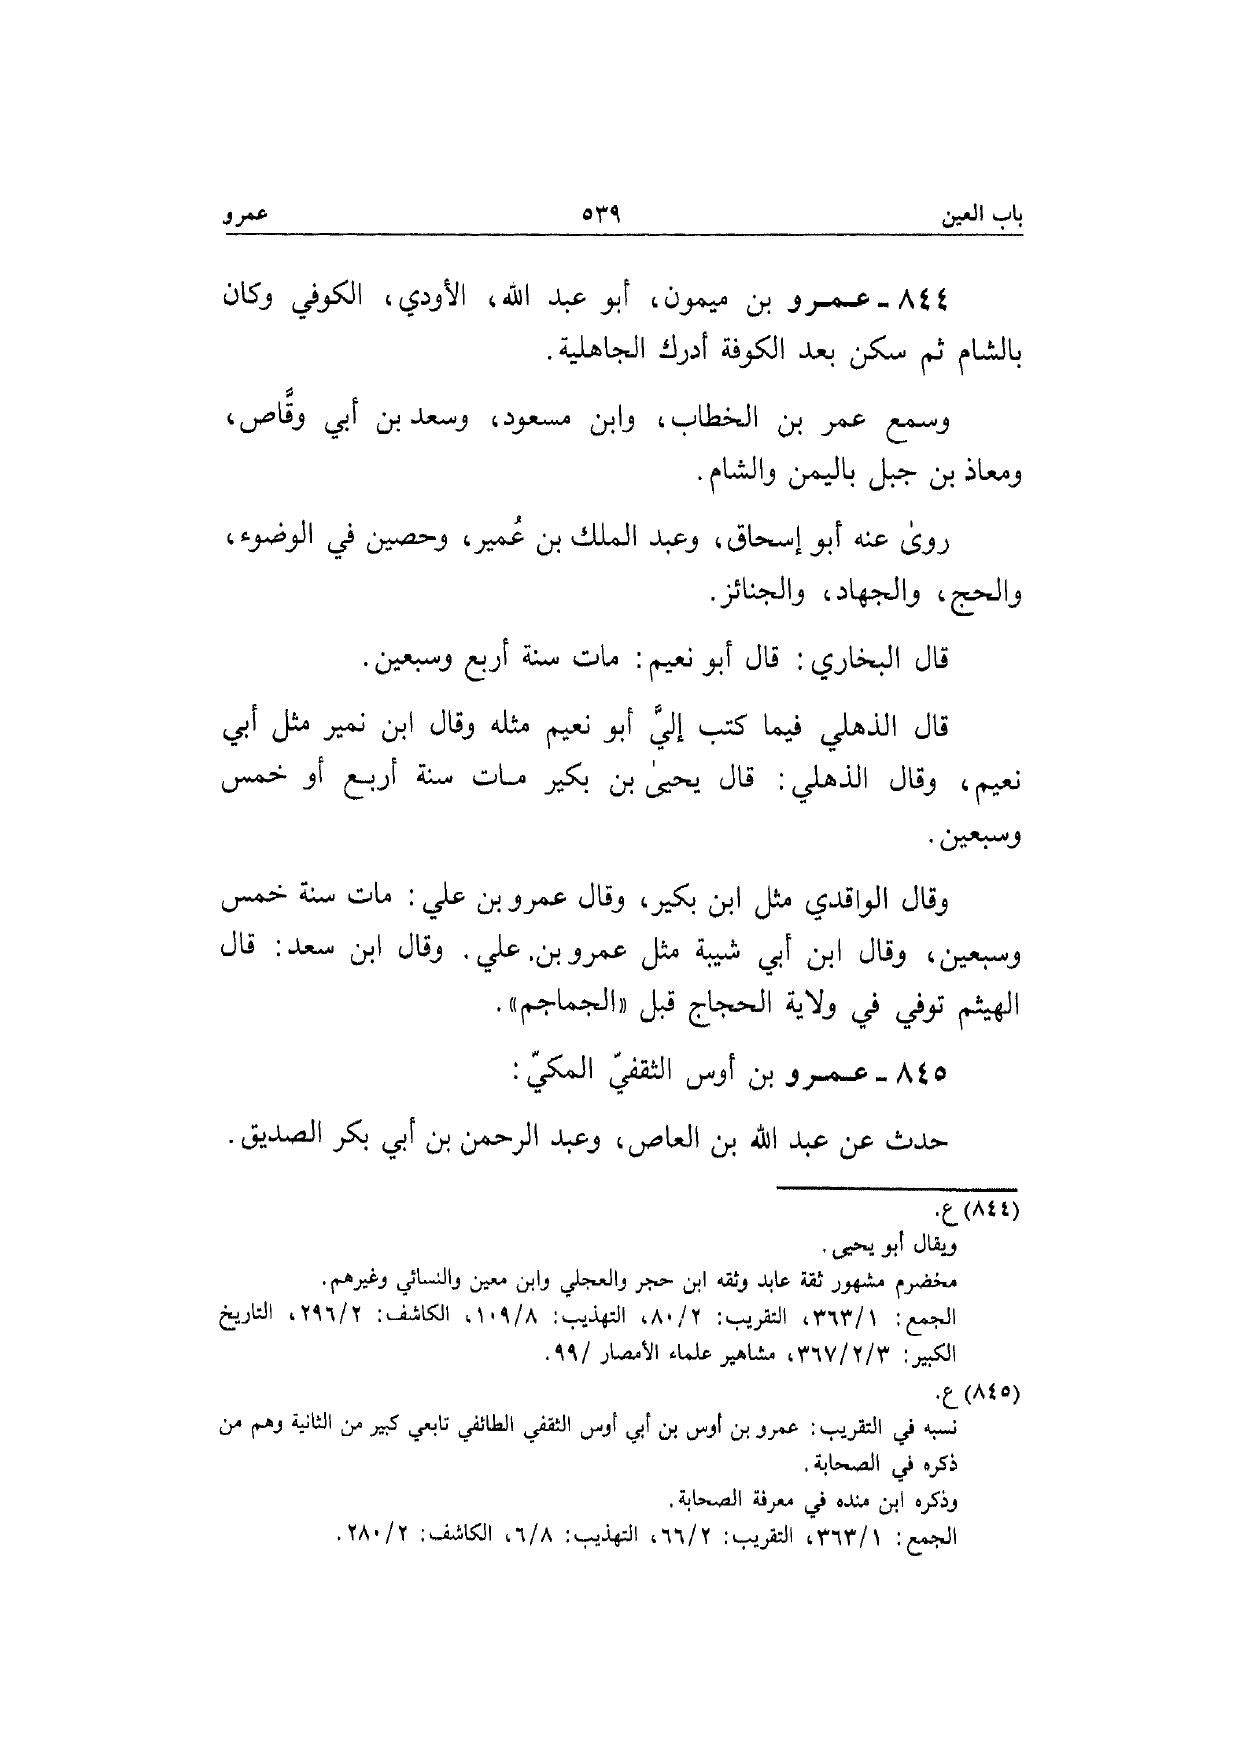 باب العين ٥٣٩ عمرو
٨٤٤ - عمرو بن ميمون، أبو عبد الله، الأودي، الكوفي وكان
بالشام ثم سكن بعد الكوفة أدرك الجاهلية.
وسمع عمر بن الخطاب، وابن مسعود، وسعد بن أبي وقَّاص،
ومعاذ بن جبل باليمن والشام.
روىٰ عنه أبو إسحاق، وعبد الملك بن عُمير، وحصين في الوضوء،
والحج، والجهاد، والجنائز.
قال البخاري: قال أبو نعيم: مات سنة أربع وسبعين.
قال الذهلي فيما كتب إليَّ أبو نعيم مثله وقال ابن نمير مثل أبي
نعيم، وقال الذهلي: قال يحيىٰ بن بكير مات سنة أربع أو خمس
وسبعين.
وقال الواقدي مثل ابن بكير، وقال عمرو بن علي: مات سنة خمس
وسبعين، وقال ابن أبي شيبة مثل عمرو بن. علي. وقال ابن سعد: قال
الهيثم توفي في ولاية الحجاج قبل «الجماجم».
٨٤٥ - عمرو بن أوس الثقفيّ المكيّ:
حدث عن عبد الله بن العاص، وعبد الرحمن بن أبي بكر الصديق.
(٨٤٤) ع.
ويقال أبو يحيى.
مخضرم مشهور ثقة عابد وثقه ابن حجر والعجلي وابن معين والنسائي وغيرهم.
الجمع: ٣٦٣/١، التقريب: ٨٠/٢، التهذيب: ١٠٩/٨، الكاشف: ٢٩٦/٢، التاريخ
الكبير: ٣٦٧/٢/٣، مشاهير علماء الأمصار /٩٩.
(٨٤٥) ع.
نسبه في التقريب: عمرو بن أوس بن أبي أوس الثقفي الطائفي تابعي كبير من الثانية وهم من
ذكره في الصحابة.
وذكره ابن منده في معرفة الصحابة.
الجمع: ٣٦٣/١، التقريب: ٦٦/٢، التهذيب: ٦/٨، الكاشف: ٢٨٠/٢.